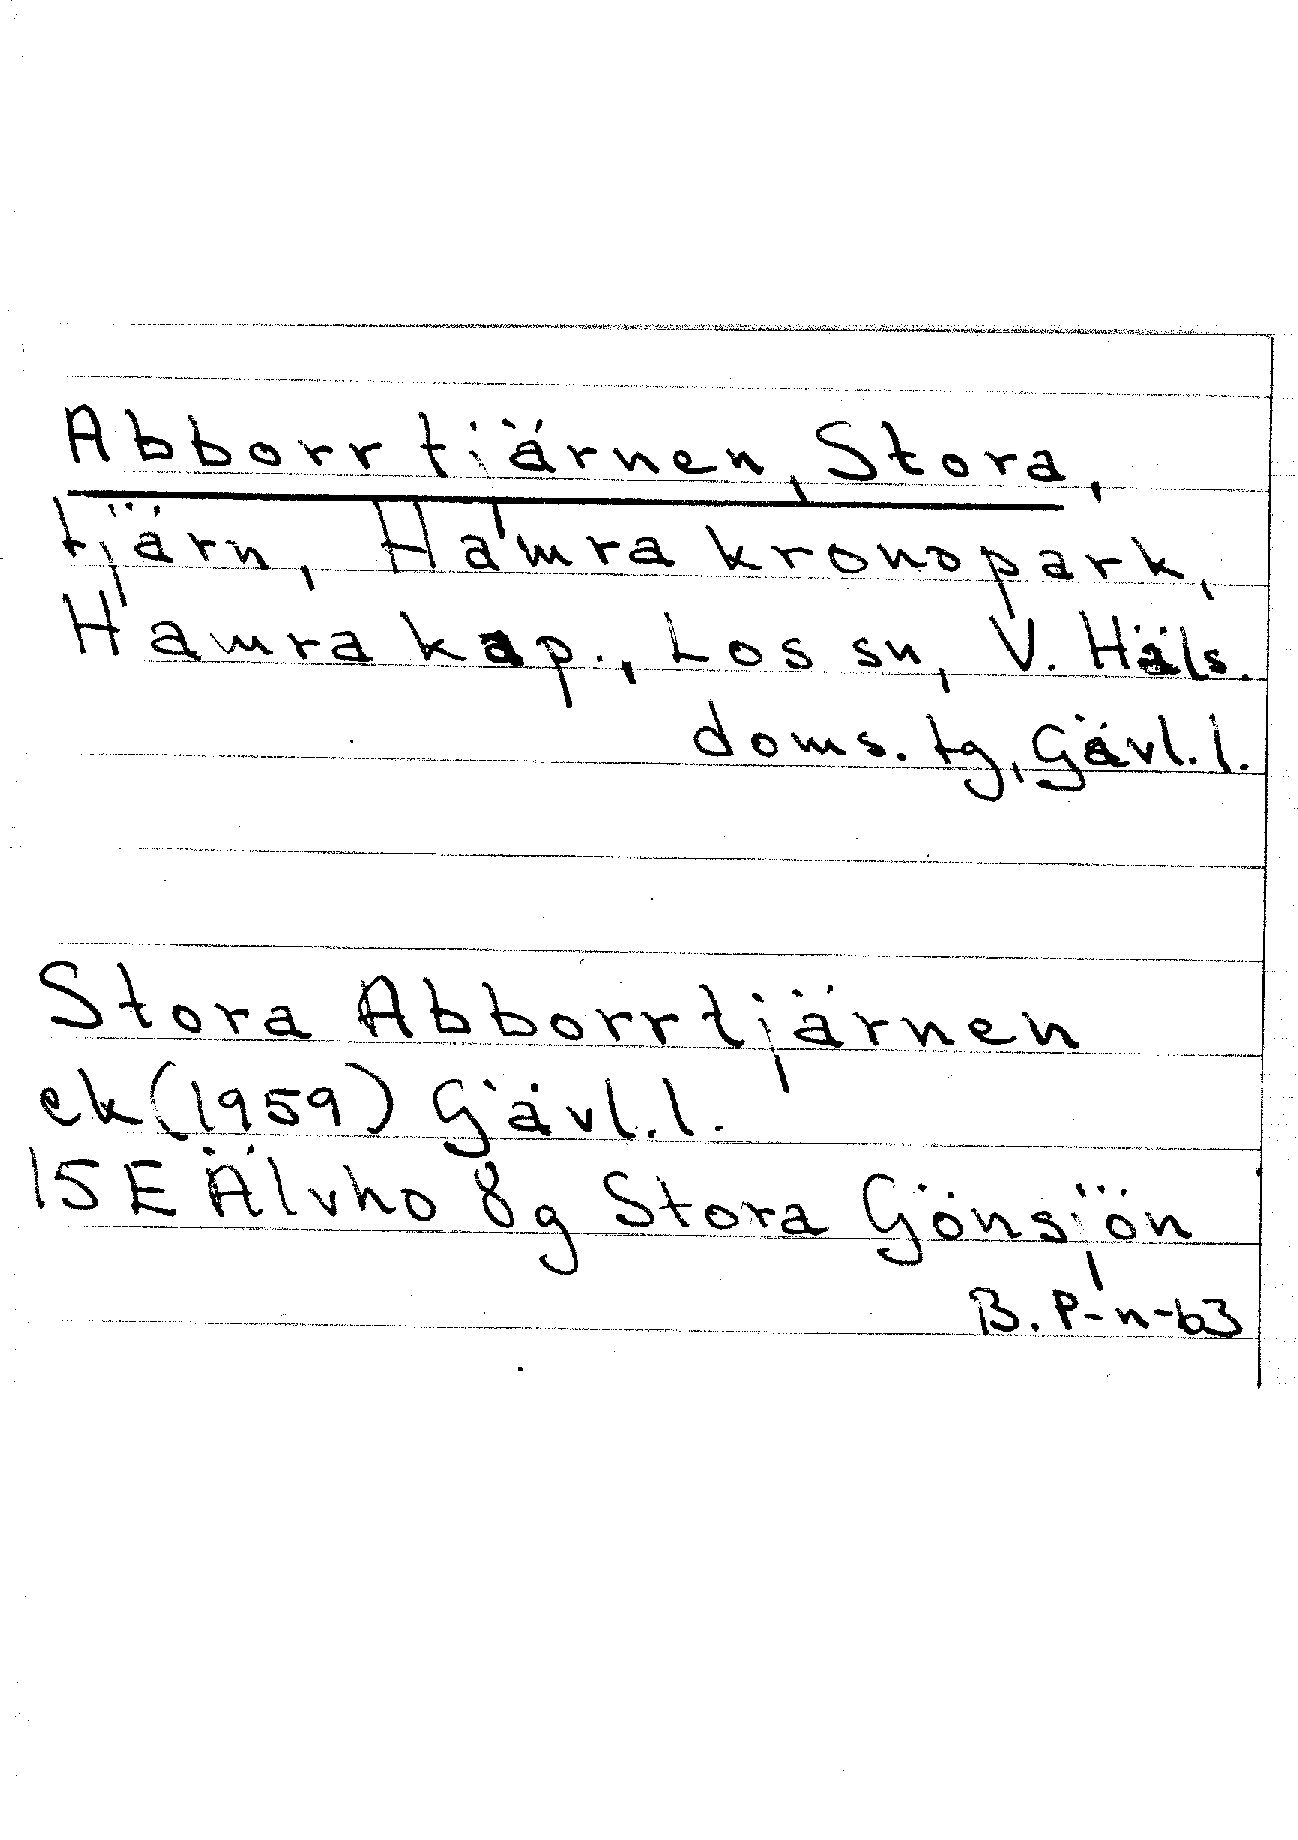 Abborrtjärnen, Stora,
tjärn, Hamra kronopark,
Hamra kap., Los sn, V. Häls.
doms. tg, Gävl. l.
Stora Abborrtjärnen
ek (1959) Gävl. l.
15 E Älvho 8g Stora Gönsjön
B. P-n-63